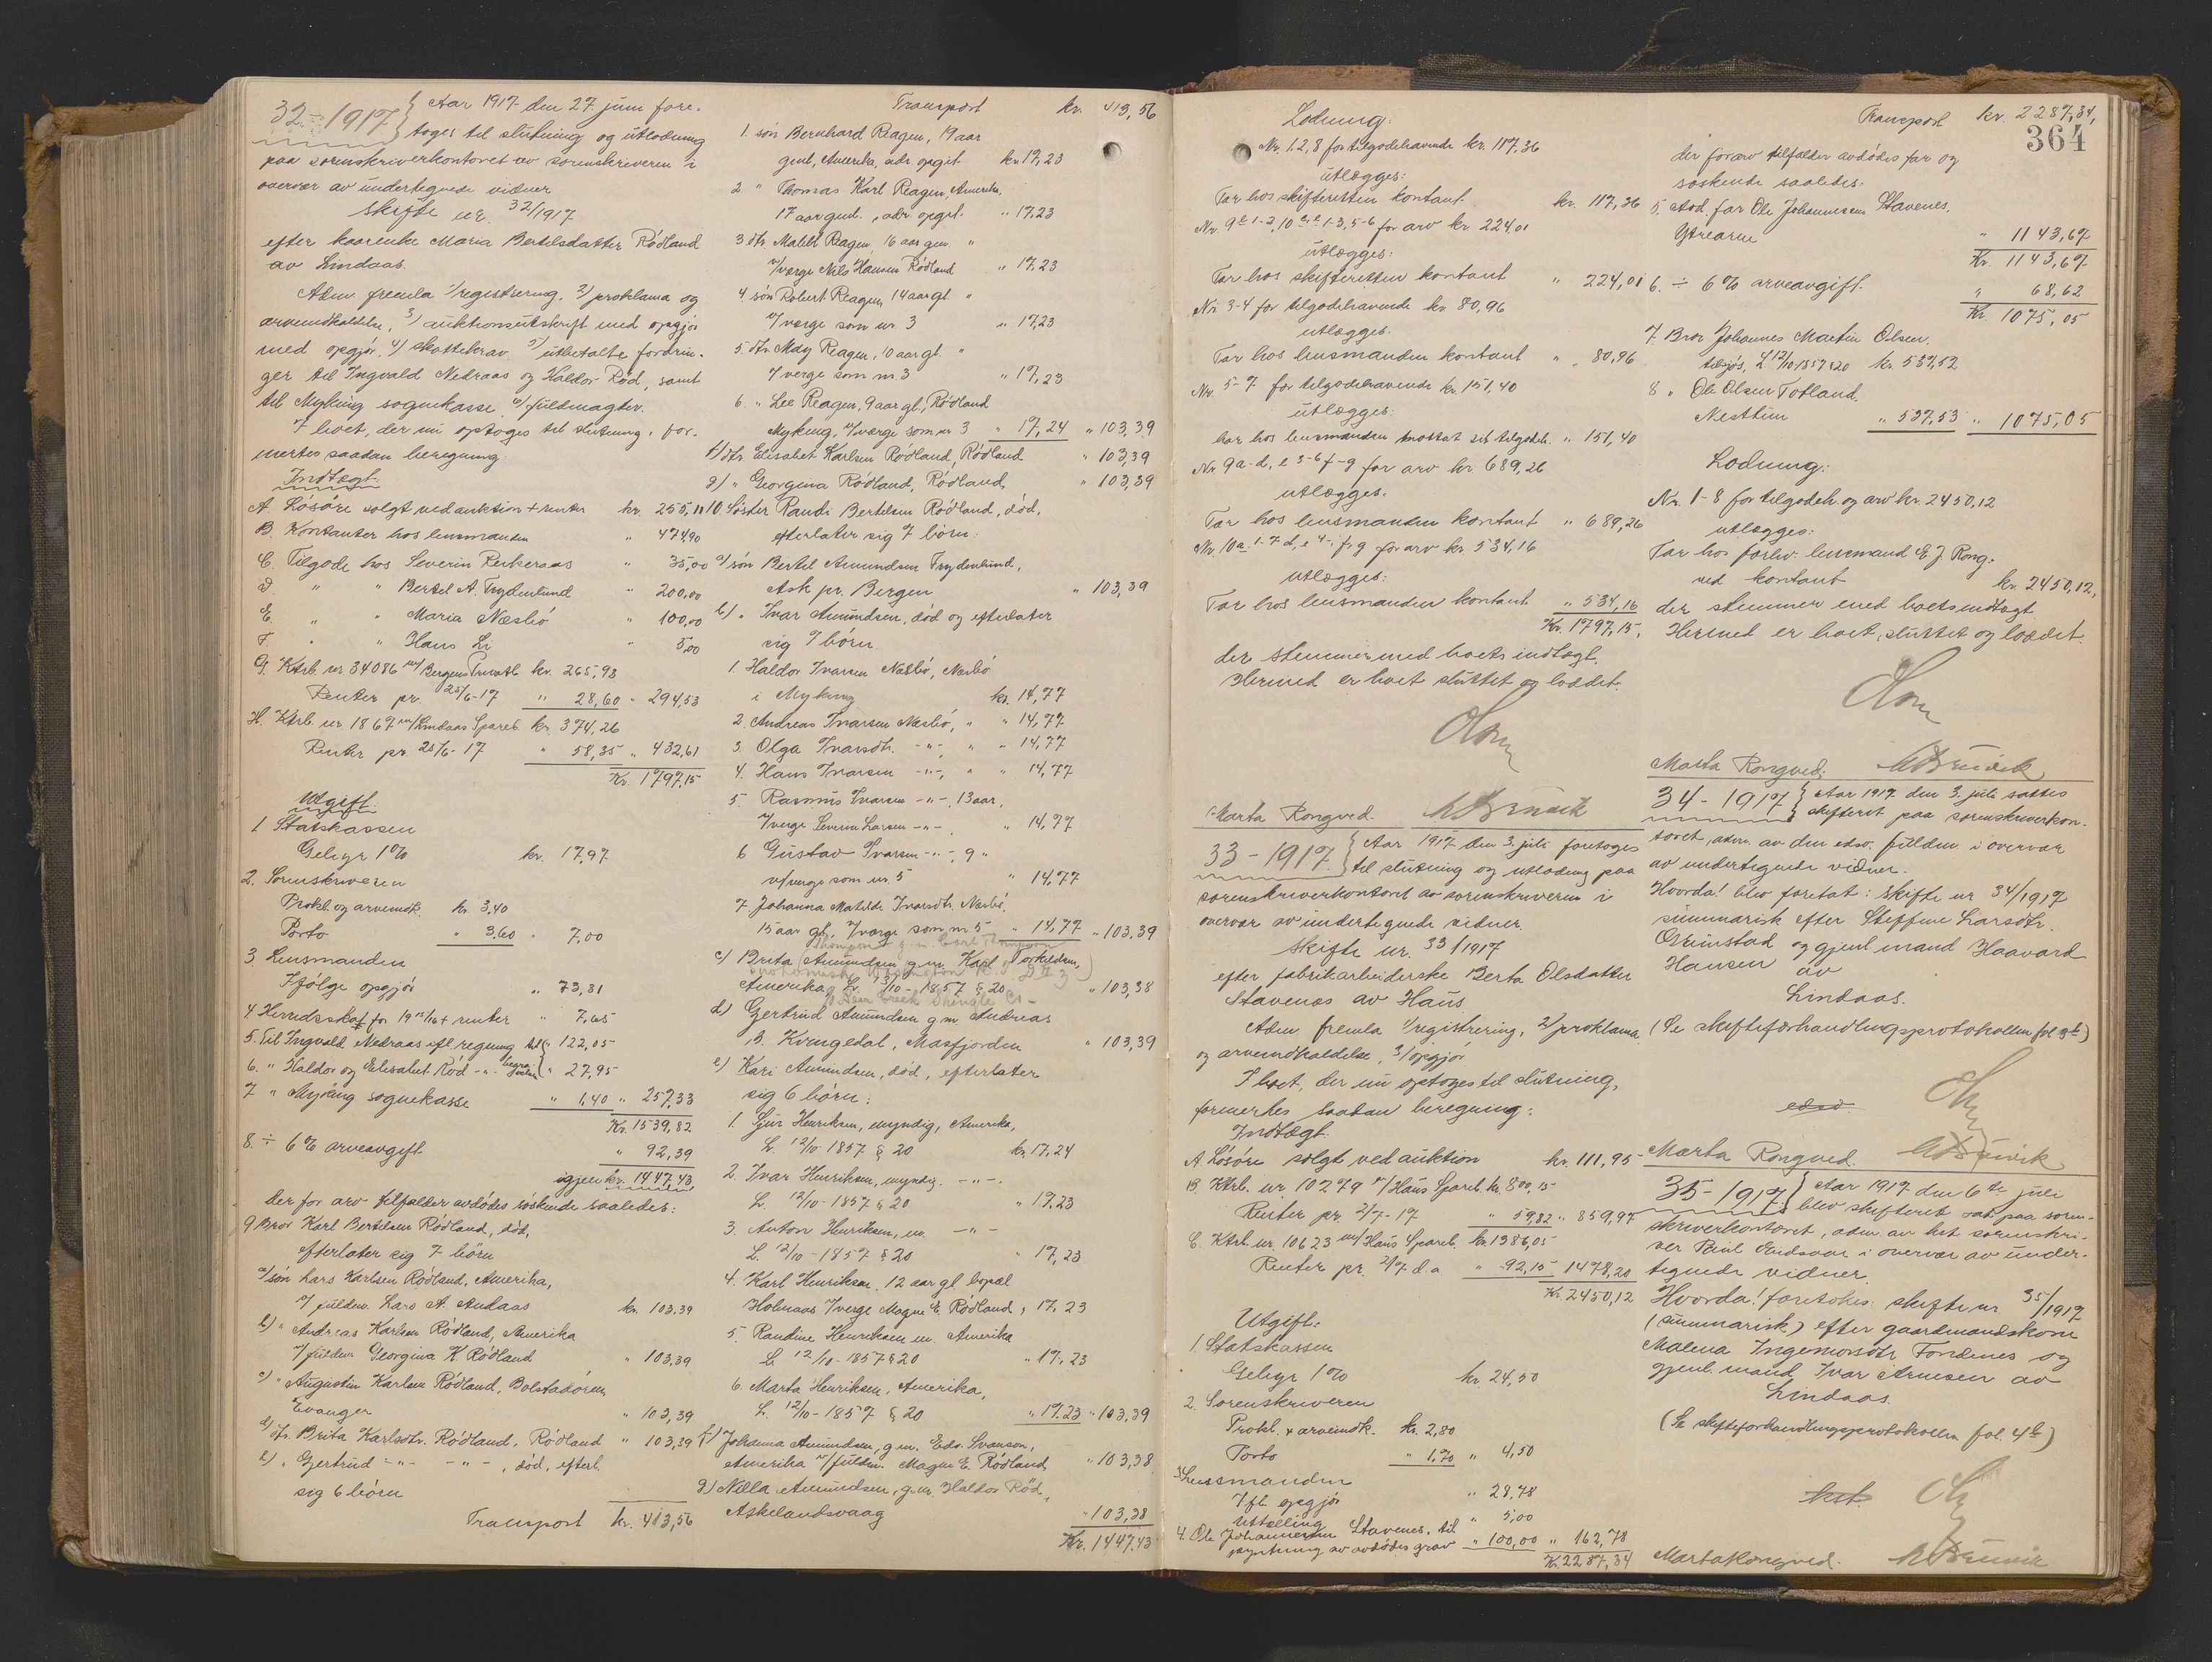 32-1917 } Aar 1917 den 27 juni fore-
toges til slutning og utlodning
paa sorenskriverkontoret av sorenskriveren i
overvær av undertegnede vidner
Skifte nr. 32/1917
efter kaarenke Maria Bertelsdatter Rødland
av Lindaas.
Adm. fremla 1/registrering, 2/proklama og
arveindkaldelse, 3/auktionsutskrift med opgjør
med opgjør, 4/ skattekrav 5/ utbetalte fordrin-
ger til Ingvald Nedraas og Haldor Rød, samt
til Myking sognekasse 6/ fuldmagter.
I boet, der nu optoges til slutning, for-
mertes saadan beregning:
Indtægt:
A. Løsøre solgt ved auktion + renter kr. 255,11
B. Kontanter hos lensmanden " 474,90
C. Tilgode hos Severin " 35,00
D " " Bertel A. Frydenlund " 200,00
E. " " Maria Næsbø " 100,00
F. " " Hans Li " 5,00
G. Ktrb. nr 34086 m/ Bergens Privatb kr. 265,93
Renter pr. 25/6-17 " 28,60 - 294,53
H. Ktrb. nr. 1867 m/ Lindaas Spareb. kr. 374,26
Renter pr. 25/6-17 " 58,35 " 432,61
Kr. 1797,15
Utgift:
1 Statskassen
Gebyr 1% kr. 17,97
2. Sorenskriveren
Prokl. og arveindk. kr. 3,40
Porto " 3,60 " 7,00
3 Lensmanden
Ifølge opgjør " 73,31
4 Herredsskat for 1915/16 + renter " 7,65
5. Til Ingvald Nedraas ifl regning til " 122,05
6. " Haldor og Elisabet Rød -"- begra- " 27,95
7 " Myking sognekasse " 1,40 " 257,33
Kr. 1539,82
8. ÷ 6% arveavgift " 92,39
igjen kr. 1447,43
der for arv tilfalder avdødes søskende saaledes:
9 Bror Karl Bertelsen Rødland, død,
efterlater sig 7 børn
a) søn Lars Karlsen Rødland, Amerika,
v/ fuldm. Lars A. Andaas kr. 103,39
b) " Andreas Karlsen Rødland, Amerika
v/ fuldm Georgina K. Rødland " 103,39
c) " Augustin Karlsen Rødland, Bolstadøren
Evanger " 103,39
d) dtr. Brita Karlsdtr. Rødland, Rødland " 103,39
e) " Gertrud -"- -"-, død, efterl.
sig 6 børn
Transport kr. 413,56
Transport kr. 413,56
1. søn Bernhard Reagen, 19 aar
gml, Amerika, adr. opgit kr. 17,23
2 " Thomas Karl Reagen, Amerika,
17 aar gml., adr. opgit. " 17,23
3 dtr. Matilt Reagen, 16 aar gm. "
v/verge Nils Hansen Rødland " 17,23
4. søn Robert Reagen, 14 aar gl "
v/verge som nr. 3 " 17,23
5 dtr. May Reagen, 10 aar gl. "
v/verge som nr 3 " 17,23
6. " Lee Reagen, 9 aar gl., Rødland
Myking, v/verge som nr 3 " 17,24 " 103,39
f) dtr. Elisabet Karlsen Rødland, Rødland " 103,39
g) " Georgina Rødland, Rødland, " 103,39
10 Søster Randi Bertelsen Rødland, død,
efterlater sig 7 børn:
a) søn Bertel Amundsen Frydenlund,
Ask pr. Bergen " 103,39
b) " Ivar Amundsen, død og efterlater
sig 7 børn
1. Haldor Ivarsen Næsbø, Næsbø
i Myking kr. 14,77
2. Andreas Ivarsen Næsbø, " " 14,77
3. Olga Ivarsdtr. -"- " " 14,77
4. Hans Ivarsen -"-, " " 14,77
5. Rasmus Ivarsen -"-, 13 aar,
v/verge Severin Larsen -"- " 14,77
6 Gustav Ivarsen -"-, 9 "
v/verge som nr. 5 " 14,77
7 Johanna Matilde Ivarsdtr. Næsbø,
15 aar gl., v/verge som nr 5 " 14,77 " 103,39
c) Brita Amundsen g.m. Karl Torkelsen,
Amerika L. 12/10-1857 § 20 " 103,38
d) Gertrud Amundsen g.m. Andreas
B. Kvingedal, Masfjorden " 103,39
e) Kari Amundsen, død, efterlater
sig 6 børn:
1. Sjur Henriksen, myndig, Amerika,
L. 12/10-1857 § 20 kr. 17,24
2. Ivar Henriksen, myndig. -"-
L. 12/10-1857 § 20 " 17,23
3. Anton Henriksen, m. -"-
L. 12/10-1857 § 20 " 17,23
4. Karl Henriksen, 12 aar gl bopæl
Holmaas v/verge Magne E. Rødland, 17,23
5. Randine Henriksen m. Amerika
L 12/10-1857 § 20 " 17,23
6. Marta Henriksen, Amerika,
L. 12/10-1857 § 20 " 17,23 " 103,39
f) Johanna Amundsen, g.m. Edv. Svanson,
Amerika v/fuldm. Magne E. Rødland " 103,38
g) Nilla Amundsen, g.m. Haldor Rød,
Askelandsvaag " 103,38
Kr. 1447,43
Lodning:
Nr. 1, 2, 8 for tilgodehavende kr. 117,36
utlægges:
Tar hos skifteretten kontant kr. 117,36
Nr. 9 e 1-2, 10 e 1-3, 5-6 for arv kr. 224,01
utlægges:
Tar hos skifteretten kontant " 224,01
Nr 3-4 for tilgodehavende kr 80,96
utlægges.
Tar hos lensmanden kontant " 80,96
Nr. 5-7 for tilgodehavende kr. 151,40
utlægges:
har hos lensmanden mottat sit tilgodeh. " 151,40
Nr. 9a-d, e 3-6 f-g for arv kr. 689,26
utlægges.
Tar hos lensmanden kontant " 689,26
Nr. 10a 1-7 d, e 4 f, g for arv kr. 534,16
utlægges:
Tar hos lensmanden kontant " 534,16
Kr. 1797,15,
der stemmer med boets indtægt.
Hermed er boet sluttet og loddet.
Marta Rongved.
33-1917 } Aar 1917 den 3. juli foretoges
til slutning og utlodning paa
sorenskriverkontoret av sorenskriveren i
overvær av undertegnede vidner.
Skifte nr. 33/1917
efter fabrikarbeiderske Berta Olsdatter
Stavenes av Haus
Adm. fremla 1/registrering, 2/proklama
og arveindkaldelse, 3/opgjør
I boet, der nu optoges til slutning,
formertes saadan beregning:
Indtægt.
A Løsøre solgt ved auktion kr. 111,95
B. Ktrb. nr 10279 m/ Haus Spareb. kr. 800,15
Renter pr. 2/7-17 " 59,82 " 859,97
C. Ktrb. nr. 10623 m/ Haus Spareb. kr. 1386,05
Renter pr. 2/7 d.a " 92,15 1478,20
Kr. 2450,12
Utgift:
1. Statskassen
Gebyr 1% kr. 24,50
2. Sorenskriveren
Prokl. + arveindk. kr. 2,80
Porto " 1,70 " 4,50
3. Lensmanden
Ifl. opgjør " 28,78
Uttælling " 5,00
4. Ole Johannesen Stavenes, til
pyntning av avdødes grav " 100,00 " 162,78
Kr. 2287,34
Transport kr. 2287,34,
364
der for arv tilfalder avdødes far og
søskende saaledes:
5. Avd. far Ole Johannessen Stavenes,
Ytrearne " 1143,67
Kr. 1143,67
6. ÷ 6% arveavgift. " 68,62
Kr. 1075,05
7. Bror Johannes Martin Olsen,
tilsjøs, L 12/10 1857 § 20 kr. 537,52
8 " Ole Olsen Totland,
Nesttun " 537,53 " 1075,05
Lodning:
Nr. 1-8 for tilgodeh. og arv kr. 2450,12
utlægges:
Tar hos forhv. lensmand E. J. Rong-
ved kontant kr. 2450,12,
der stemmer med boets indtægt
Hermed er boet sluttet og loddet.
Marta Rongved.
34-1917 } Aar 1917 den 3. juli sattes
skifteret paa sorenskriverkon-
toret, adm. av den edsv. fuldm i overvær
av undertegnede vidner.
Hvorda! blev foretat: Skifte nr 34/1917
summarisk efter Steffine Larsdtr.
Grimstad og gjenl. mand Haavard
Hansen av
Lindaas.
(Se skifteforhandlingsprotokollen fol 3b)
edsv.
Marta Rongved.
35-1917 } Aar 1917 den 6te juli
blev skifteret sat paa soren-
skriverkontoret, adm. av kst sorenskri-
ver Paul i overvær av under-
tegnede vidner.
Hvorda! foretokes: skifte nr 35/1917
(summarisk) efter gaardmandskone
Malena Ingemorsdtr Fondenes og
gjenl. mand Ivar Arnesen av
Lindaas.
(Se skifteforhandlingsprotokollen fol. 4b)
kst.
Marta Rongved.